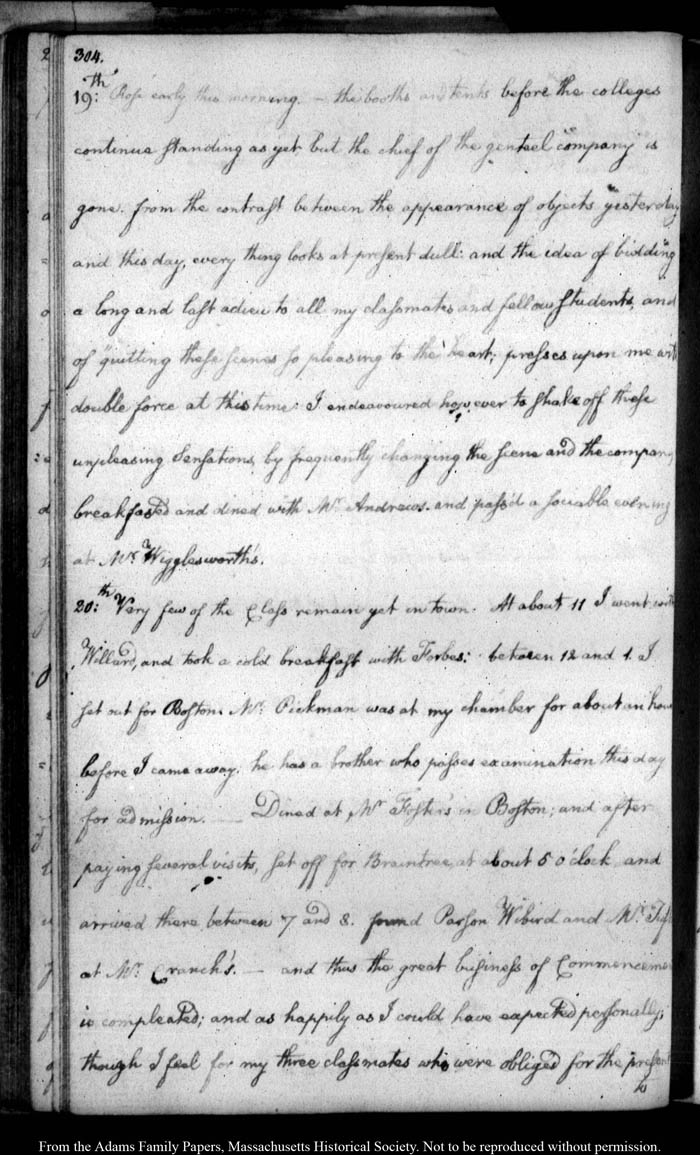 304.
19:th Rose early this morning. — the booths and tents before the colleges
continue standing as yet, but the chief of the genteel company is
gone. from the contrast between the appearance of objects yesterday
and this day, every thing looks at present dull: and the idea of bidding
a long and last adieu to all my classmates and fellow students, and
of quitting these scenes so pleasing to the heart; presses upon me with
double force at this time: I endeavoured however to shake off these
unpleasing Sensations, by frequently changing the scene and the company
breakfasted and dined with Mr. Andrews. and pass'd a sociable evening
at Mr. Wigglesworth's.
20:th Very few of the Class remain yet in town. At about 11 I went with
Willard, and took a cold breakfast with Forbes: between 12 and 1. I
set out for Boston. Mr. Pickman was at my chamber for about an hour
before I came away. he has a brother who passes examination this day
for admission. — Dined at Mr. Foster's in Boston; and after
paying several visits, set off for Braintree, at about 5 o'clock and
arrived there between 7 and 8. found Parson Wibird and Mr.
at Mr. Cranch's. — and thus the great business of Commencement
is compleated; and as happily as I could have expected personally;
though I feel for my three classmates who were obliged for the present
to
From the Adams Family Papers, Massachusetts Historical Society. Not to be reproduced without permission.